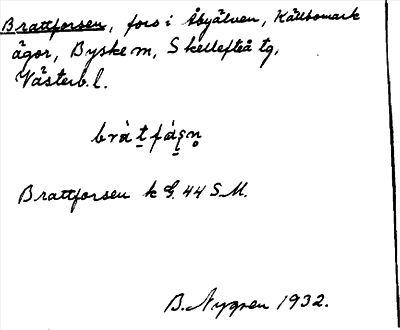 Brattforsen, fors i Åbyälven, Källbomark
ägor, Byske m, Skellefteå tg,
Västerb. l.
Brattforsen k G. 44 S.M.
B. Nygren 1932.